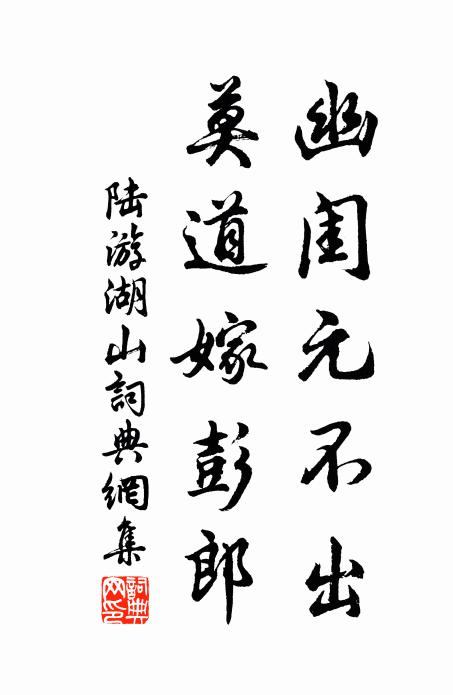 幽闺元不出
莫道嫁彭郎
陆游湖山詞典網集
詞典网印